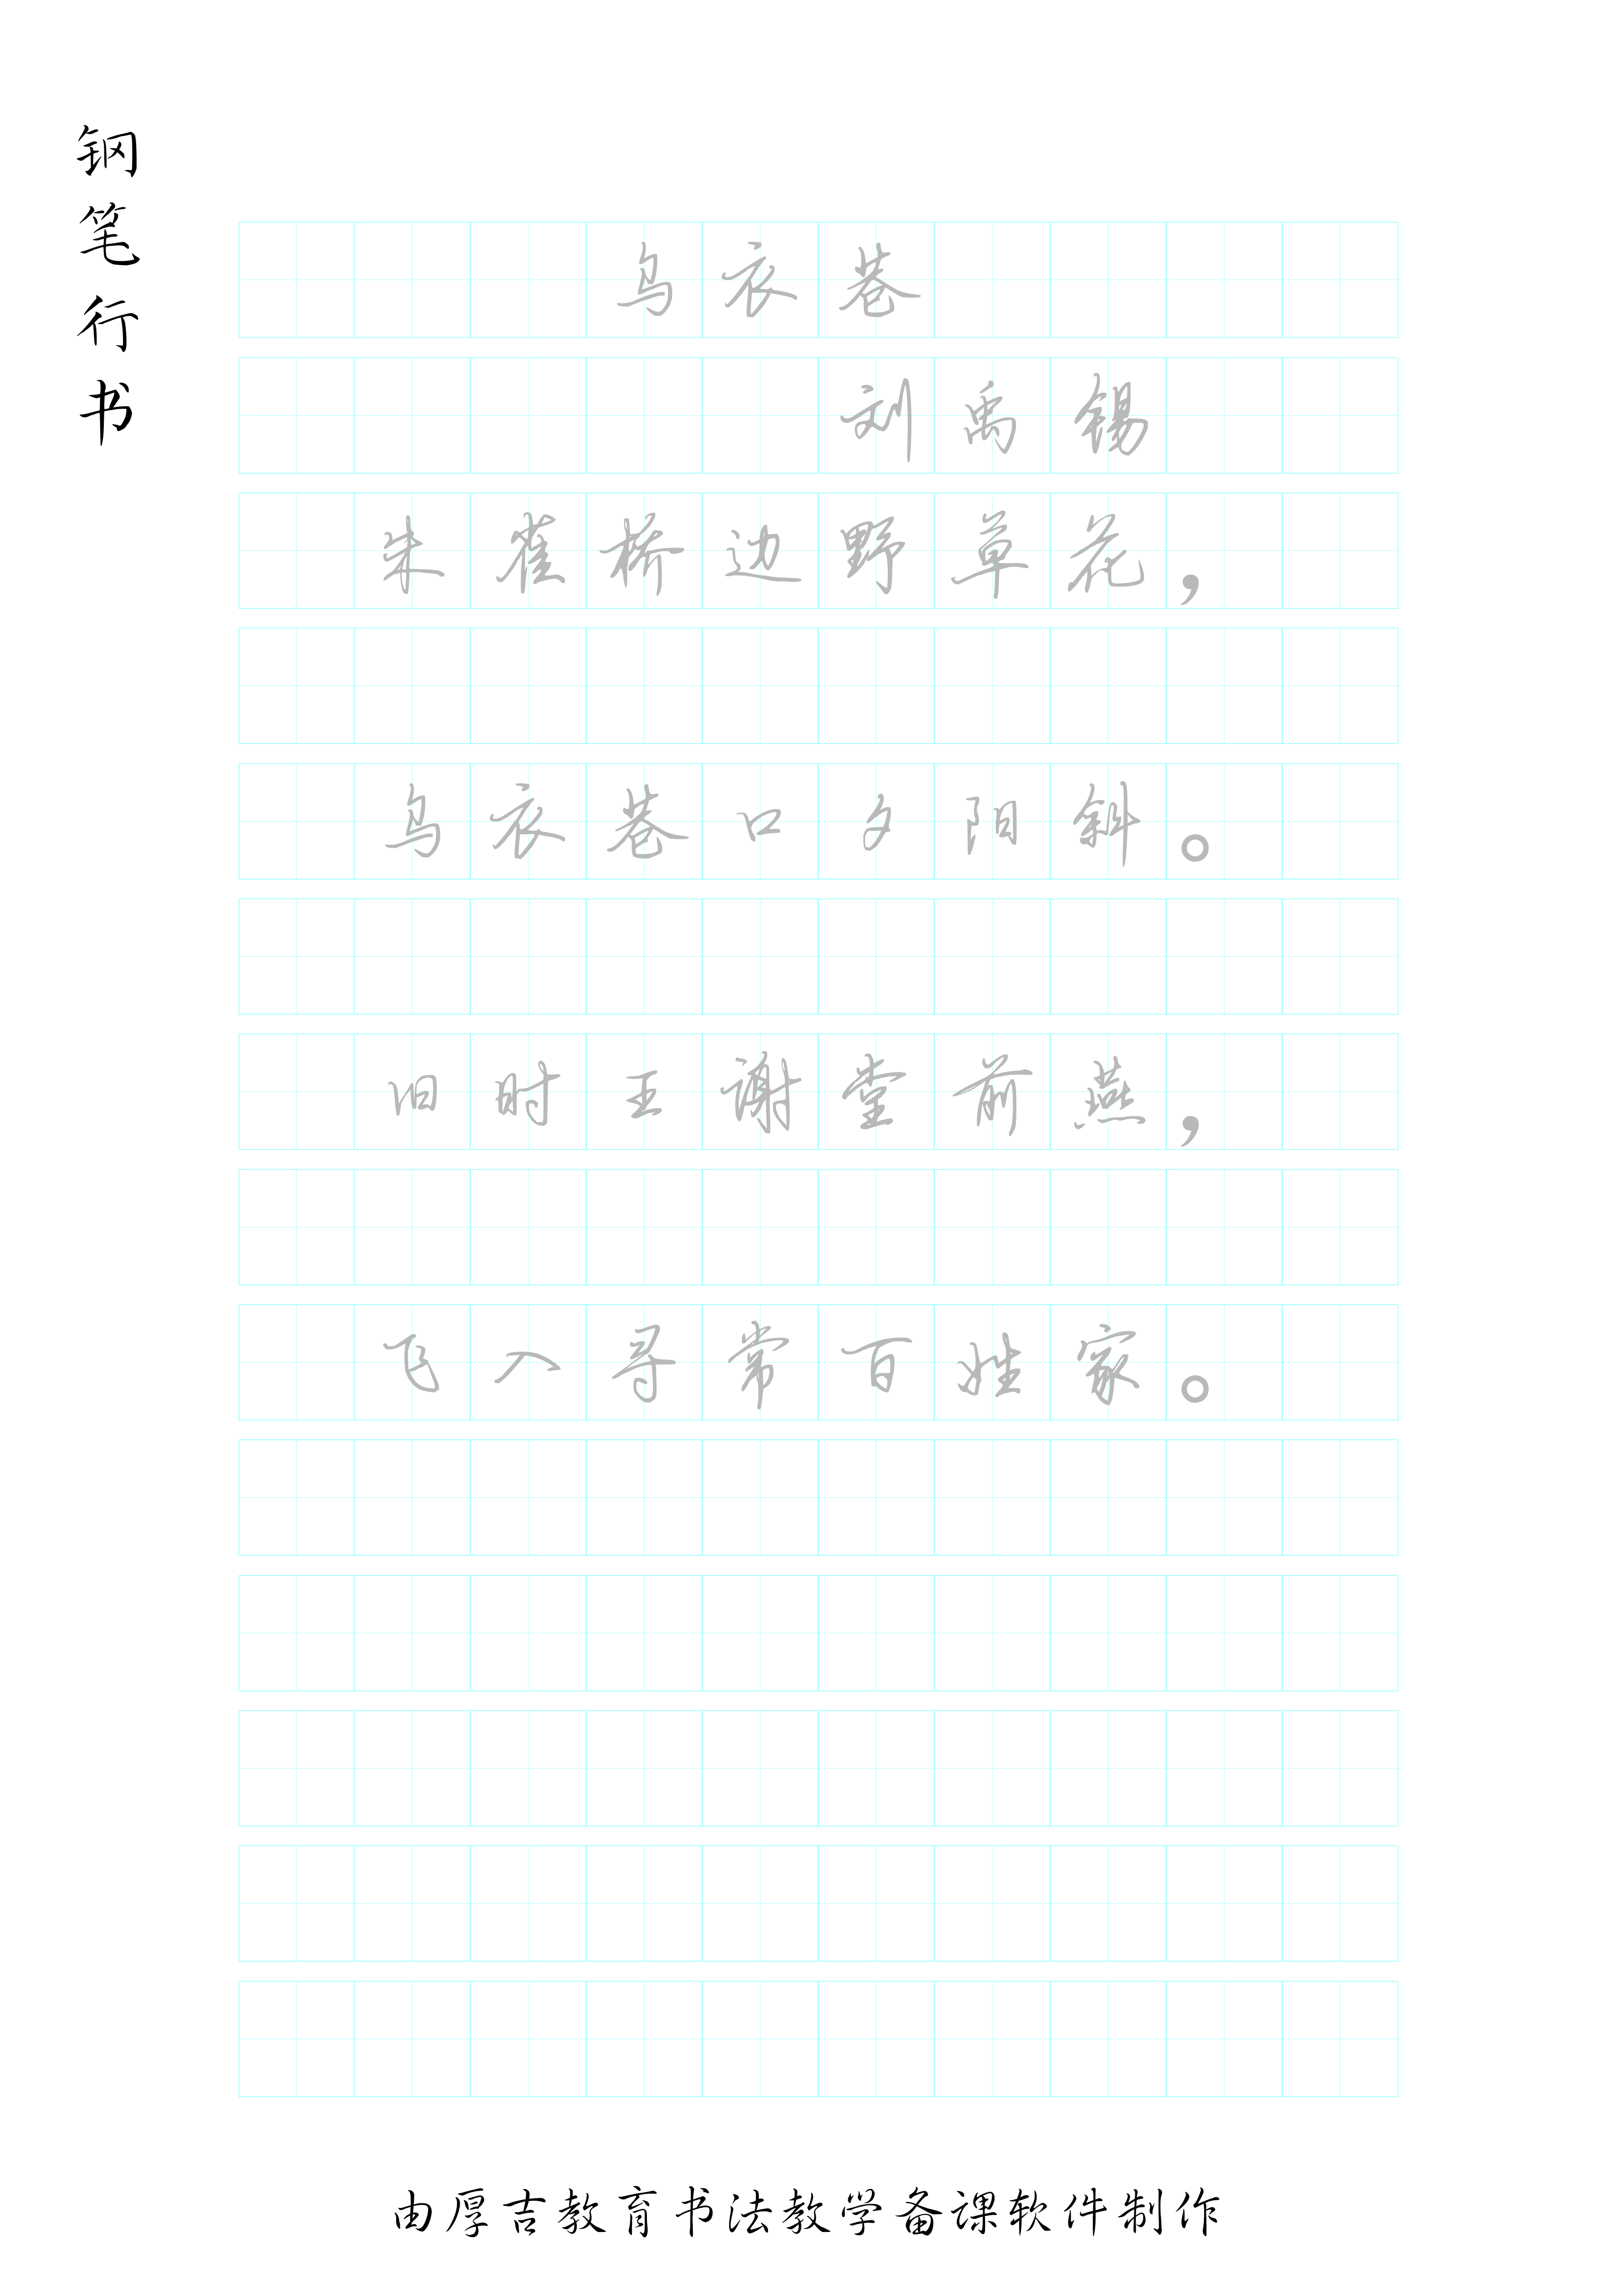 钢笔行书
乌衣巷
刘禹锡
朱雀桥边野草花，
乌衣巷口夕阳斜。
旧时王谢堂前燕，
飞入寻常百姓家。
由厚吉教育书法教学备课软件制作